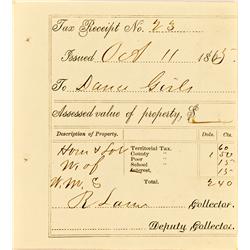 Tax Receipt No. 23
Issued Oct 11 1865
To
Assessed value of property, $
Description of Property. Dols. Cts.
Territorial Tax. 60
County " 1 50
W. of Poor " 15
School " 15
W. M. E Interest,
Total. 2 40
Collector.
Deputy Collector.